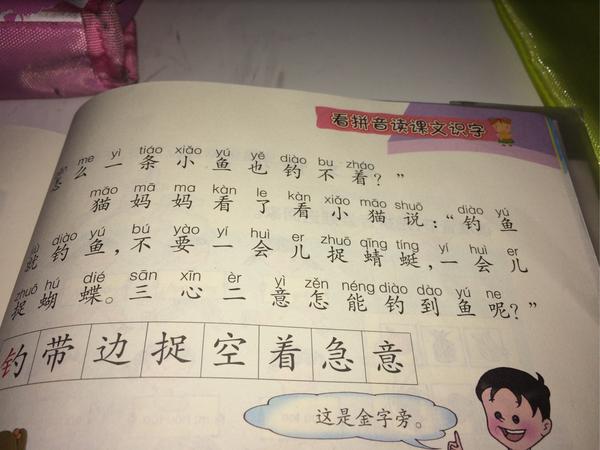 看拼音读课文识字
me yì tiáo xiǎo yú yě diào bu zháo
怎么一条小鱼也钓不着？”
māo mā ma kàn le kàn xiǎo māo shuō diào yú
猫妈妈看了看小猫说：“钓鱼
diào yú bú yào yí huì er zhuō qīng tíng yí huì er
就钓鱼，不要一会儿捉蜻蜓，一会儿
zhuō hú dié sān xīn èr yì zěn néng diào dào yú ne
捉蝴蝶。三心二意怎能钓到鱼呢？”
钓带边捉空着急意
这是金字旁。